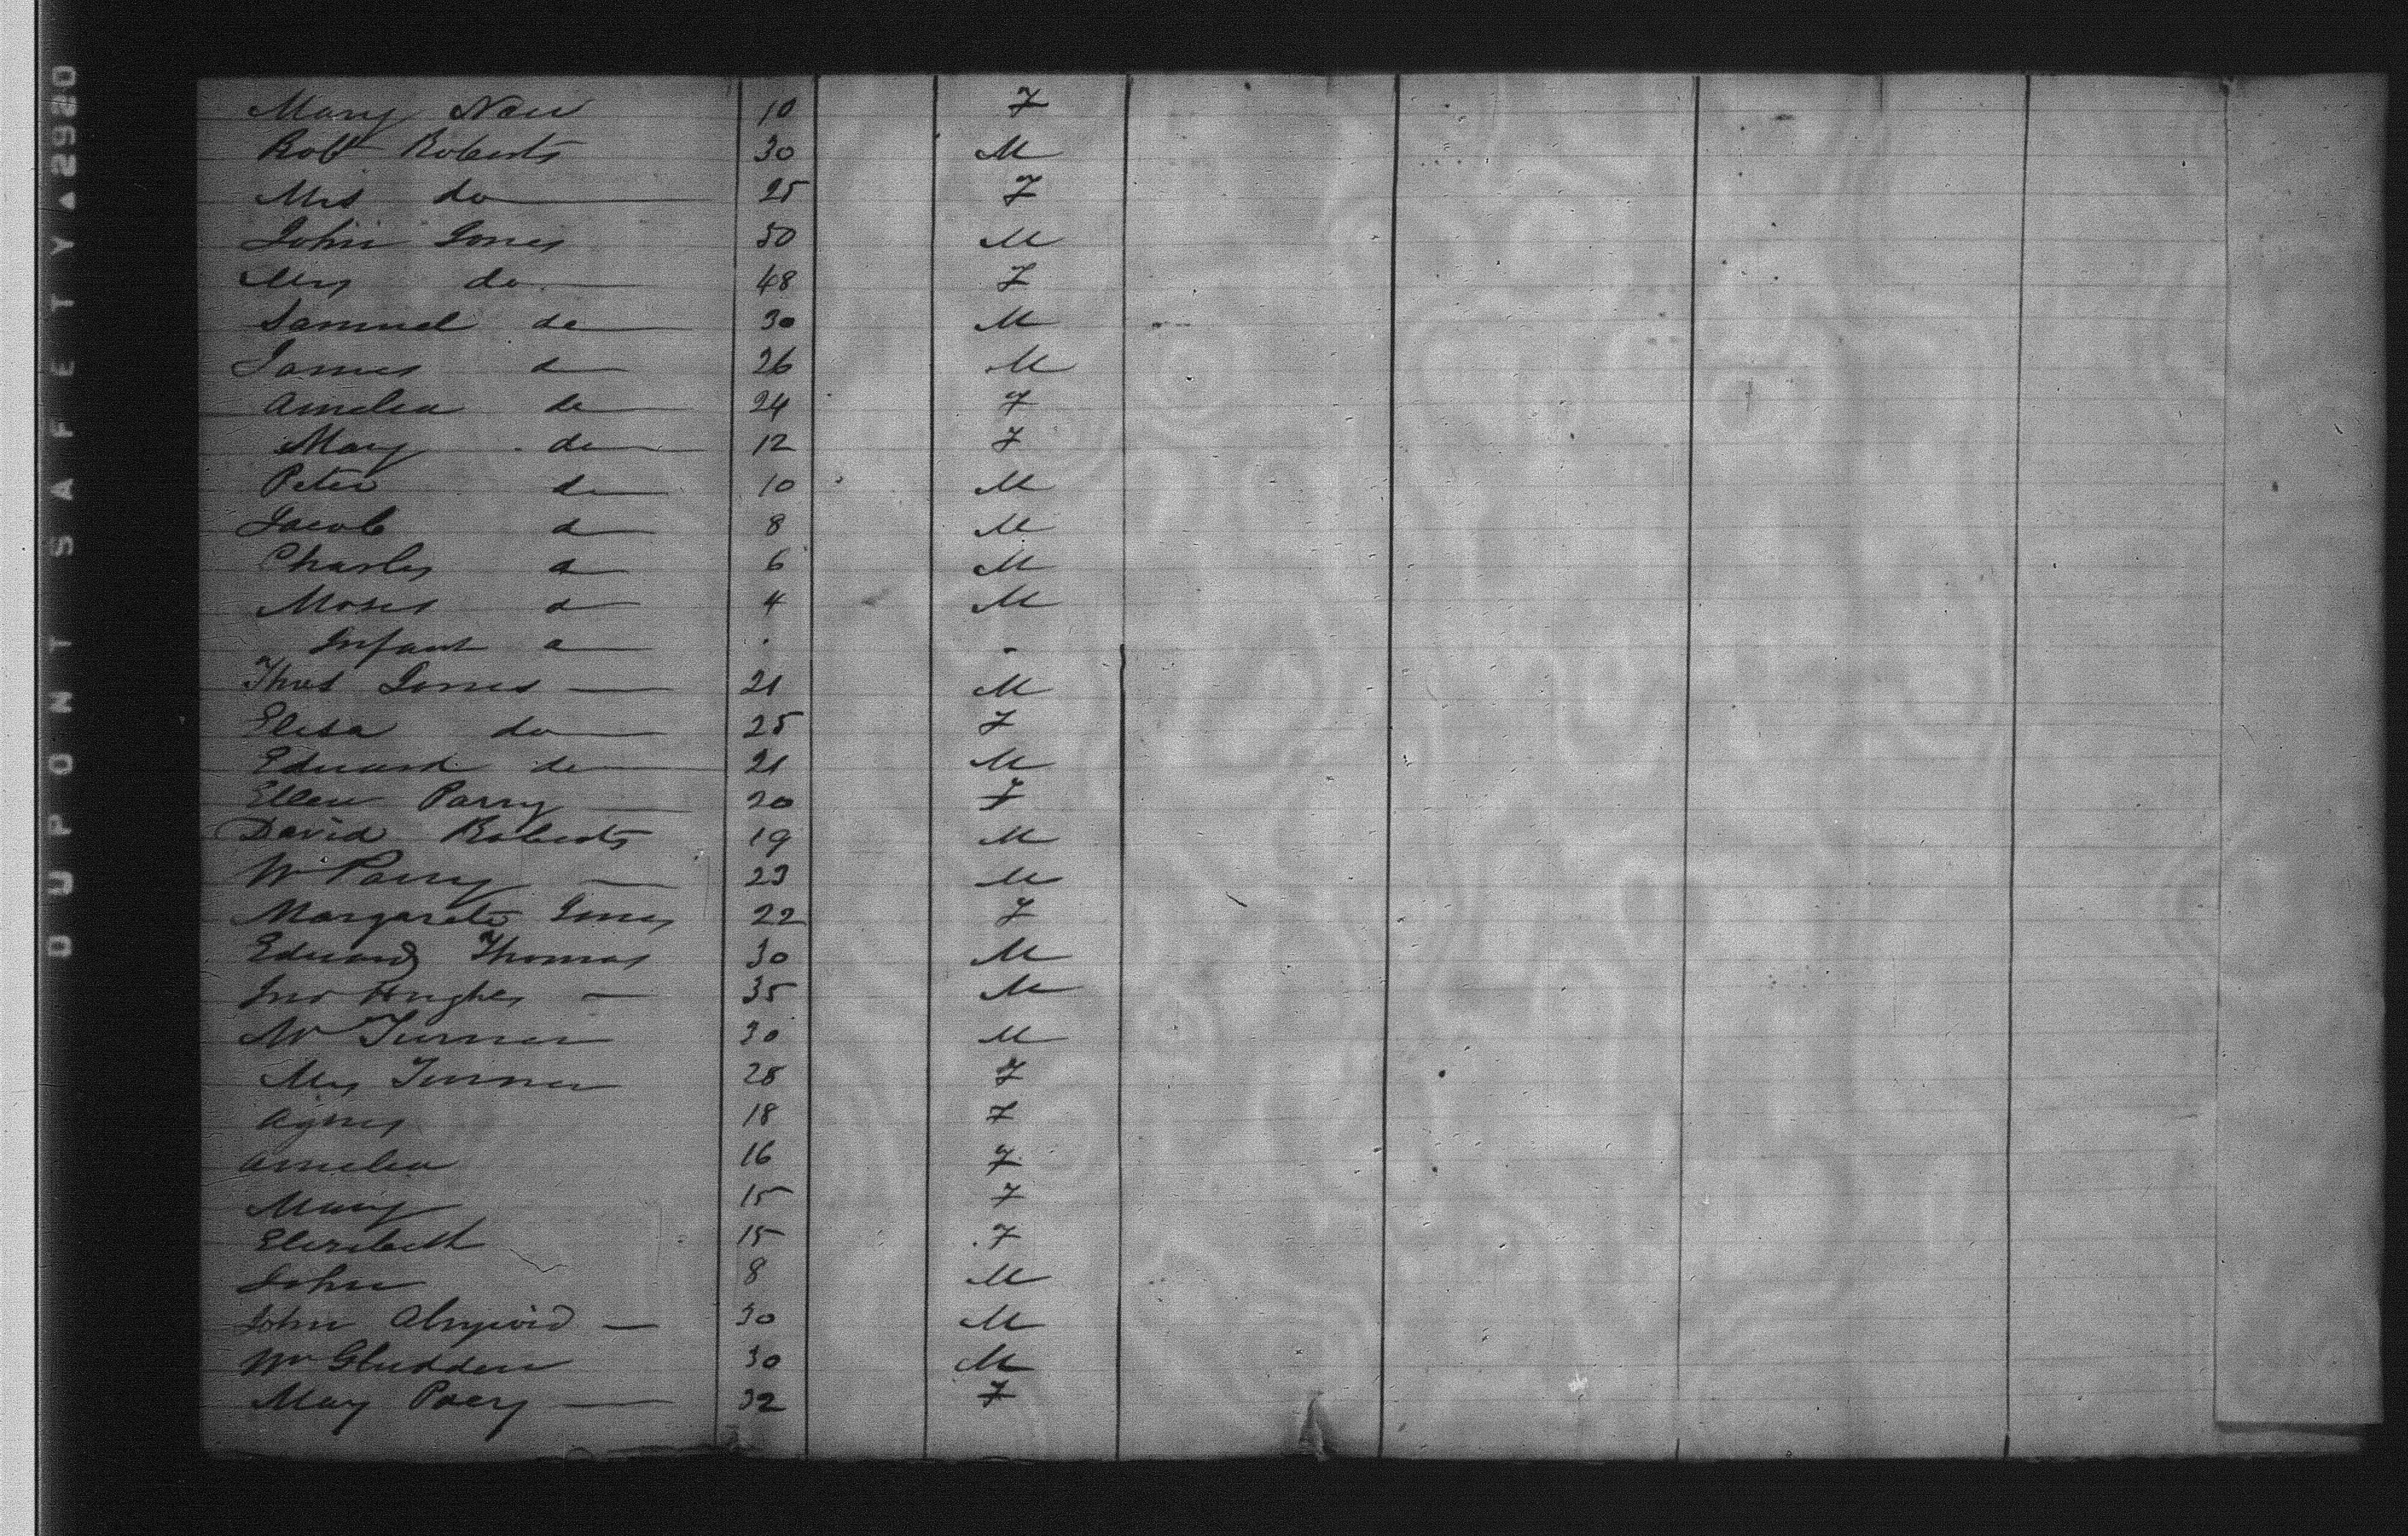 Mary New 10 F
Robt Roberts 30 M
Mrs do 25 F
John Jones 50 M
Mrs do 48 F
Samuel do 30 M
James do 26 M
Amelia do 24 F
Mary do 12 F
Peter do 10 M
Jacob do 8 M
Charles do 6 M
Moses do 4 M
Infant do
Thos Jones 21 M
Elisa do 25 F
Edward do 21 M
Ellen Parry 20 F
David Roberts 19 M
Wm Parry 23 M
Margaret Jones 22 F
Edward Thomas 30 M
Jno Hughes 35 M
Mr Turner 30 M
Mrs Turner 28 F
Agnes 18 F
Amelia 16 F
Mary 15 F
Elizabeth 15 F
John 8 M
John 30 M
Wm Gludden 30 M
May 32 F
DUPONT SAFETY▲2920